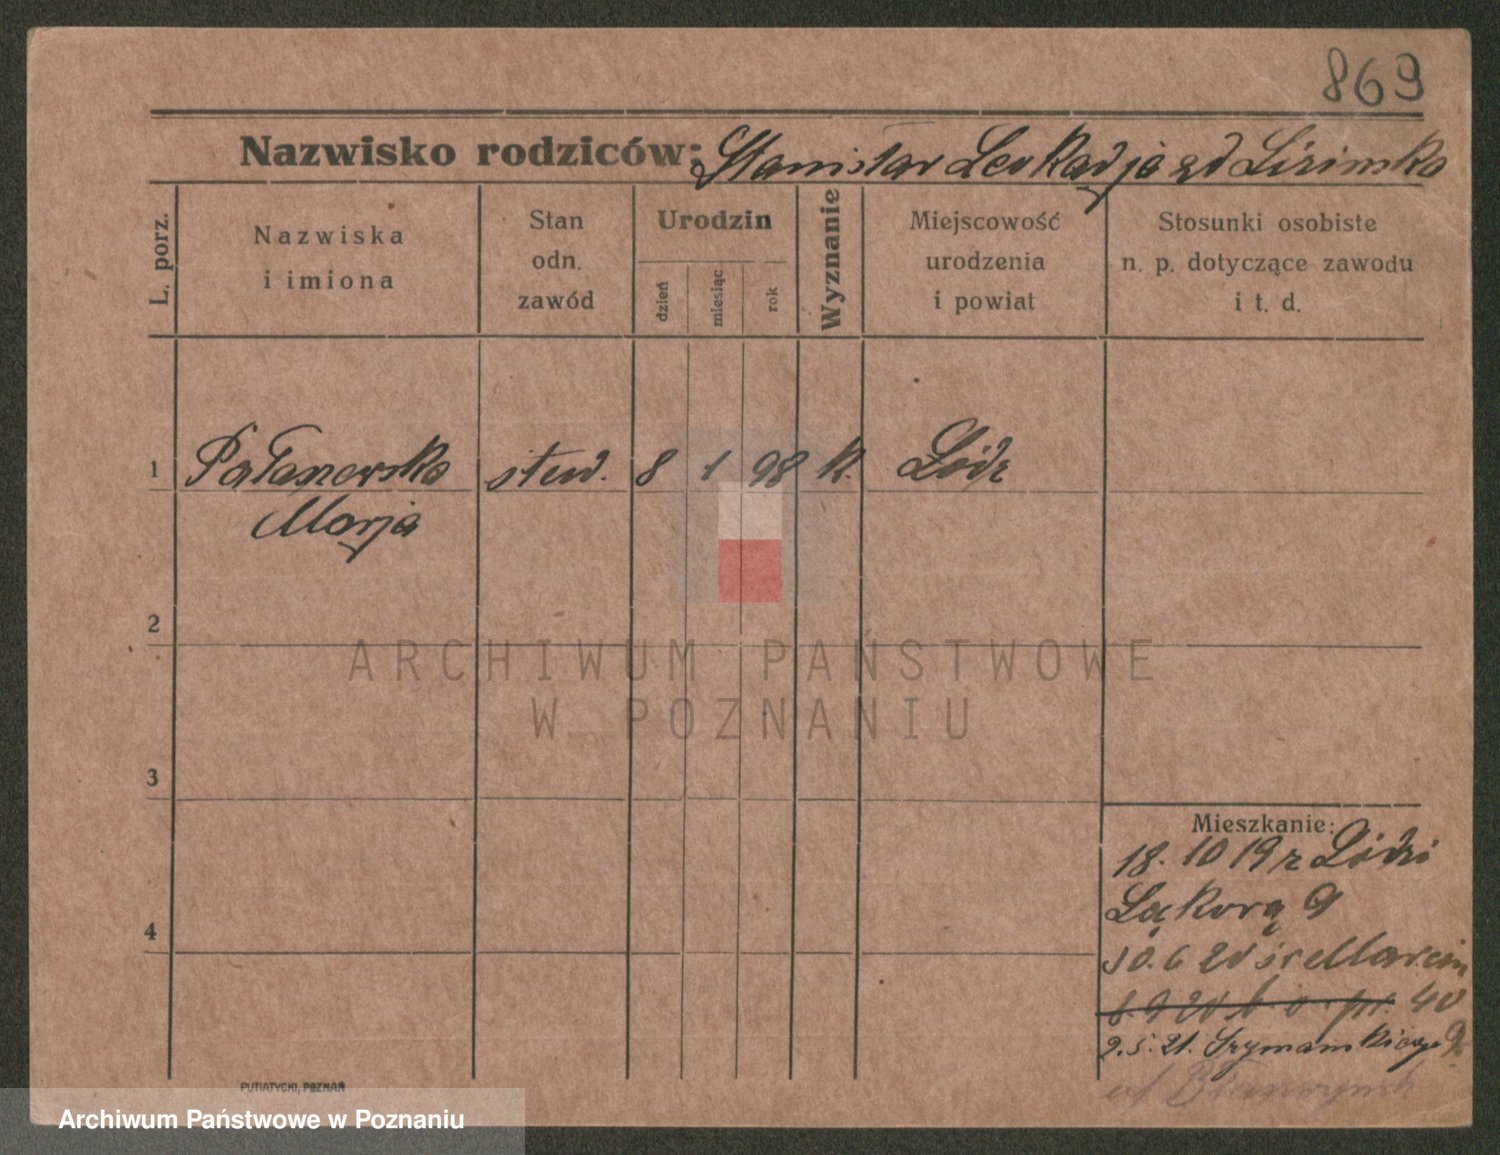 869
Nazwisko rodziców: Stanisław Leokadja zd
L. porz.
Nazwiska
i imiona
Stan
odn.
zawód
Urodzin
dzień
miesiąc
rok
Wyznanie
Miejscowość
urodzenia
i powiat
Stosunki osobiste
n. p. dotyczące zawodu
i t. d.
1 stud. 8 1 98 k. Łódź
Marja
2
ARCHIWUM PAŃSTWOWE
W POZNANIU
3
Mieszkanie:
18. 10 19 z Łodzi
Łąkową 9
4
10. 6 20 św Marcin
8. 9 20 b. o. pr. 40
2. 5. 21. 9.
PUTIATYCKI, POZNAŃ
Archiwum Państwowe w Poznaniu